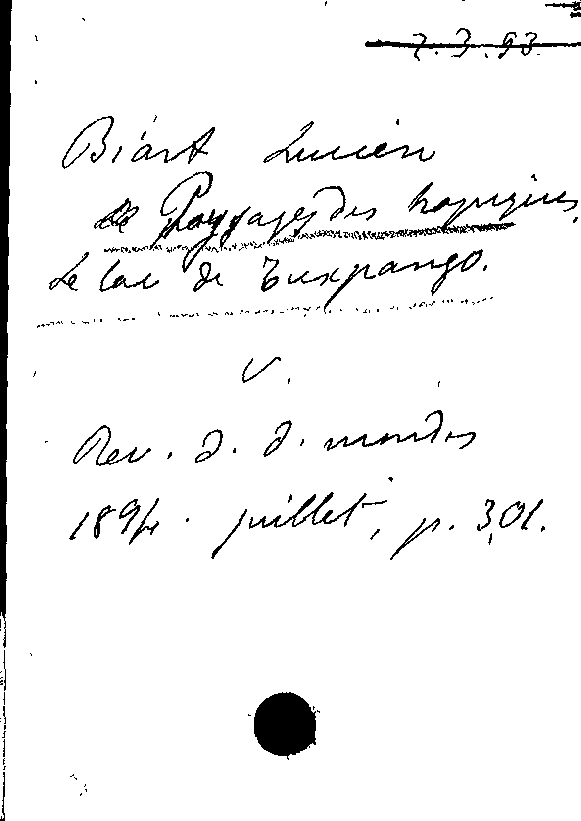 7.3.93.
Biart Lucien
Paysages des tropiques.
Le lac de Tuxpango.
V.
Rev. d. d. mondes
1894. juillet, p. 301.